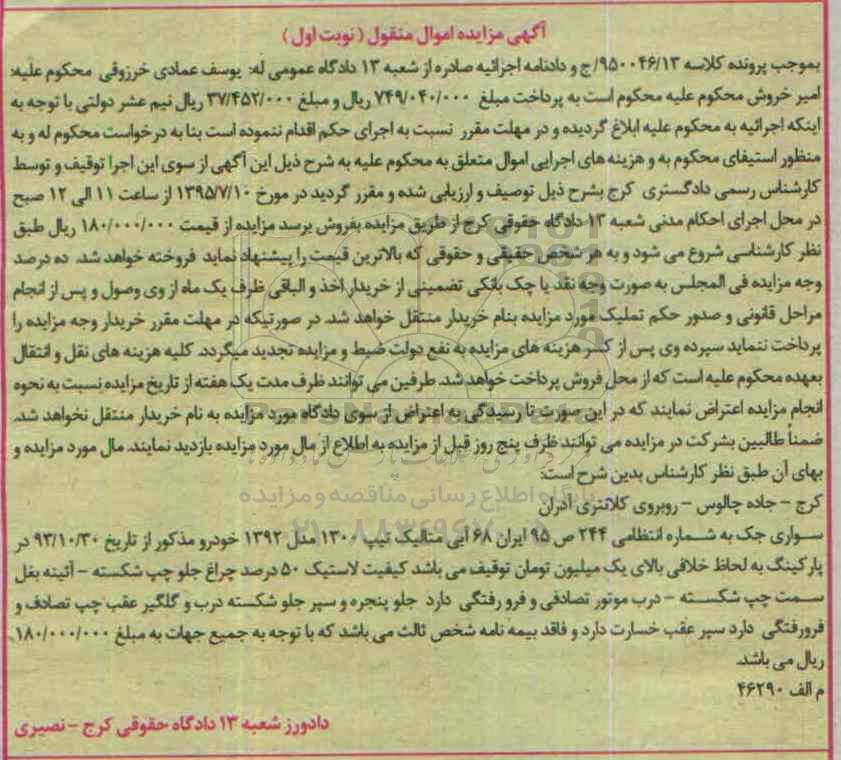 آگهی مزایده اموال منقول ( نوبت اول )
بموجب پرونده کلاسه ۹۵۰۰۴۶/۱۳/ج و دادنامه اجرائیه صادره از شعبه ۱۳ دادگاه عمومی له: یوسف عمادی خرزوقی محکوم علیه:
امیر خروش محکوم علیه محکوم است به پرداخت مبلغ ۷۴۹/۰۴۰/۰۰۰ ریال و مبلغ ۳۷/۴۵۲/۰۰۰ ریال نیم عشر دولتی با توجه به
اینکه اجرائیه به محکوم علیه ابلاغ گردیده و در مهلت مقرر نسبت به اجرای حکم اقدام ننموده است بنا به درخواست محکوم له و به
منظور استیفای محکوم به و هزینه های اجرایی اموال متعلق به محکوم علیه به شرح ذیل این آگهی از سوی این اجرا توقیف و توسط
کارشناس رسمی دادگستری کرج بشرح ذیل توصیف و ارزیابی شده و مقرر گردید در مورخ ۱۳۹۵/۷/۱۰ از ساعت ۱۱ الی ۱۲ صبح
در محل اجرای احکام مدنی شعبه ۱۳ دادگاه حقوقی کرج از طریق مزایده بفروش برسد مزایده از قیمت ۱۸۰/۰۰۰/۰۰۰ ریال طبق
نظر کارشناسی شروع می شود و به هر شخص حقیقی و حقوقی که بالاترین قیمت را پیشنهاد نماید فروخته خواهد شد. ده درصد
وجه مزایده فی المجلس به صورت وجه نقد یا چک بانکی تضمینی از خریدار اخذ و الباقی ظرف یک ماه از وی وصول و پس از انجام
مراحل قانونی و صدور حکم تملیک مورد مزایده بنام خریدار منتقل خواهد شد. در صورتیکه در مهلت مقرر خریدار وجه مزایده را
پرداخت ننماید سپرده وی پس از کسر هزینه های مزایده به نفع دولت ضبط و مزایده تجدید میگردد. کلیه هزینه های نقل و انتقال
بعهده محکوم علیه است که از محل فروش پرداخت خواهد شد. طرفین می توانند ظرف مدت یک هفته از تاریخ مزایده نسبت به نحوه
انجام مزایده اعتراض نمایند که در این صورت تا رسیدگی به اعتراض از سوی دادگاه مورد مزایده به نام خریدار منتقل نخواهد شد.
ضمناً طالبین بشرکت در مزایده می توانند ظرف پنج روز قبل از مزایده به اطلاع از مال مورد مزایده بازدید نمایند. مال مورد مزایده و
بهای آن طبق نظر کارشناس بدین شرح است:
پایگاه اطلاع رسانی مناقصه و مزایده
کرج – جاده چالوس – روبروی کلانتری آدران
۰۲۱-۸۸۳۴۹۶۷۰-۵
سواری جک به شماره انتظامی ۲۴۴ ص ۹۵ ایران ۶۸ آبی متالیک تیپ ۱۳۰۰ مدل ۱۳۹۲ خودرو مذکور از تاریخ ۹۳/۱۰/۳۰ در
پارکینگ به لحاظ خلافی بالای یک میلیون تومان توقیف می باشد کیفیت لاستیک ۵۰ درصد چراغ جلو چپ شکسته – آئینه بغل
سمت چپ شکسته – درب موتور تصادفی و فرو رفتگی دارد جلو پنجره و سپر جلو شکسته درب و گلگیر عقب چپ تصادف و
فرورفتگی دارد سپر عقب خسارت دارد و فاقد بیمه نامه شخص ثالث می باشد که با توجه به جمیع جهات به مبلغ ۱۸۰/۰۰۰/۰۰۰
ریال می باشد.
م الف ۴۶۲۹۰
دادورز شعبه ۱۳ دادگاه حقوقی کرج – نصیری